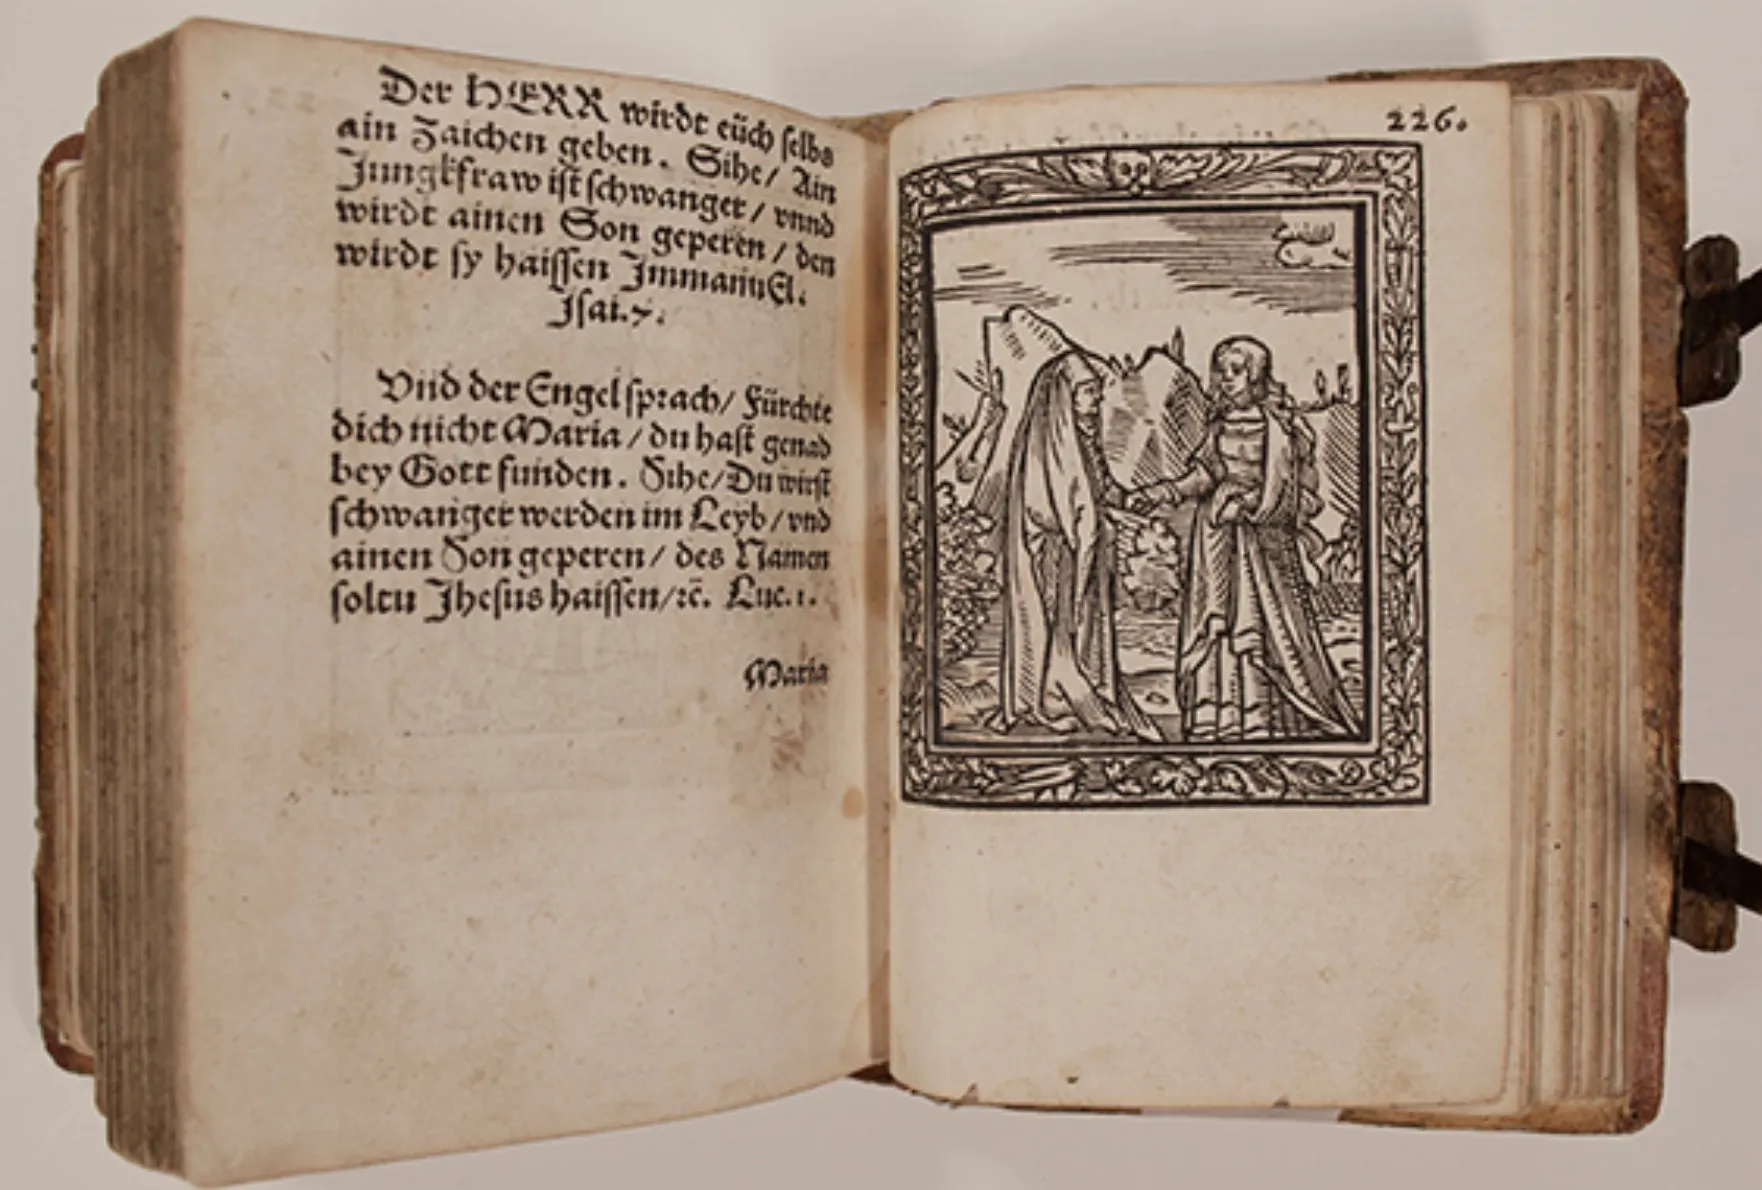 Der HERR wirdt eüch selbs
ain Zaichen geben. Sihe/ Ain
Jungkfraw ist schwanger/ vnnd
wirdt ainen Son geperen/ den
wirdt sy haissen ImmanuEl.
Isai.7.
Vnd der Engel sprach/ Fürchte
dich nicht Maria/ du hast genad
bey Gott funden. Sihe/ Du wirst
schwanger werden im Leyb/ vnd
ainen Son geperen/ des Namen
soltu Jhesus haissen/ ꝛc̄. Luc.1.
Maria
226.